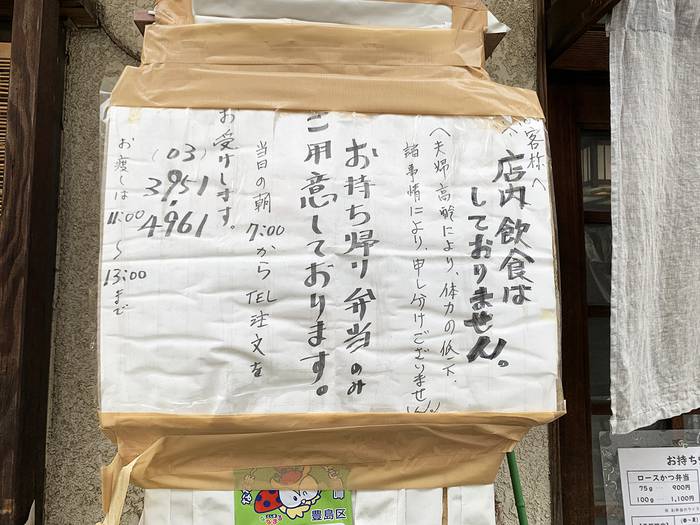 お客様へ
店内飲食は
しておりません。
へ夫婦高齢により、体力の低下、
諸事情により、申し分けございません。
お持ち帰り弁当のみ
ご用意しております。
当日の朝7:00からTEL注文を
お受けします。
(03)
3951
4961
お渡しは11:00～13:00まで
豊島区
お持ち
ロースかつ弁当
75g 900円
100g 1,100円